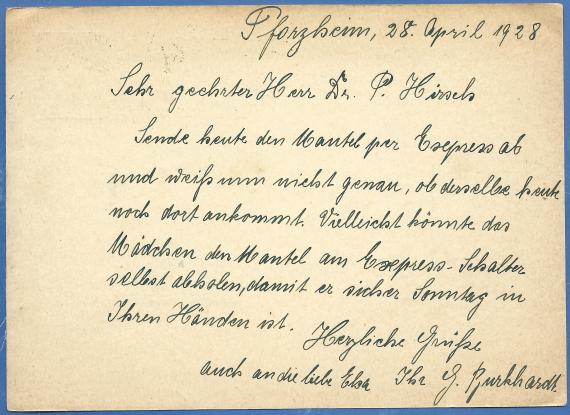 Pforzheim, 28. April 1928
Sehr geehrter Herr Dr. P. Hirsch
Sende heute den Mantel per Exepress ab
und weiß nun nicht genau, ob derselbe heute
noch dort ankommt. Vielleicht könnte das
Mädchen den Mantel am Exepress-Schalter
selbst abholen, damit er sicher Sonntag in
Ihren Händen ist.
Herzliche Grüße
auch an die liebe Elsa Ihr G. Burkhardt